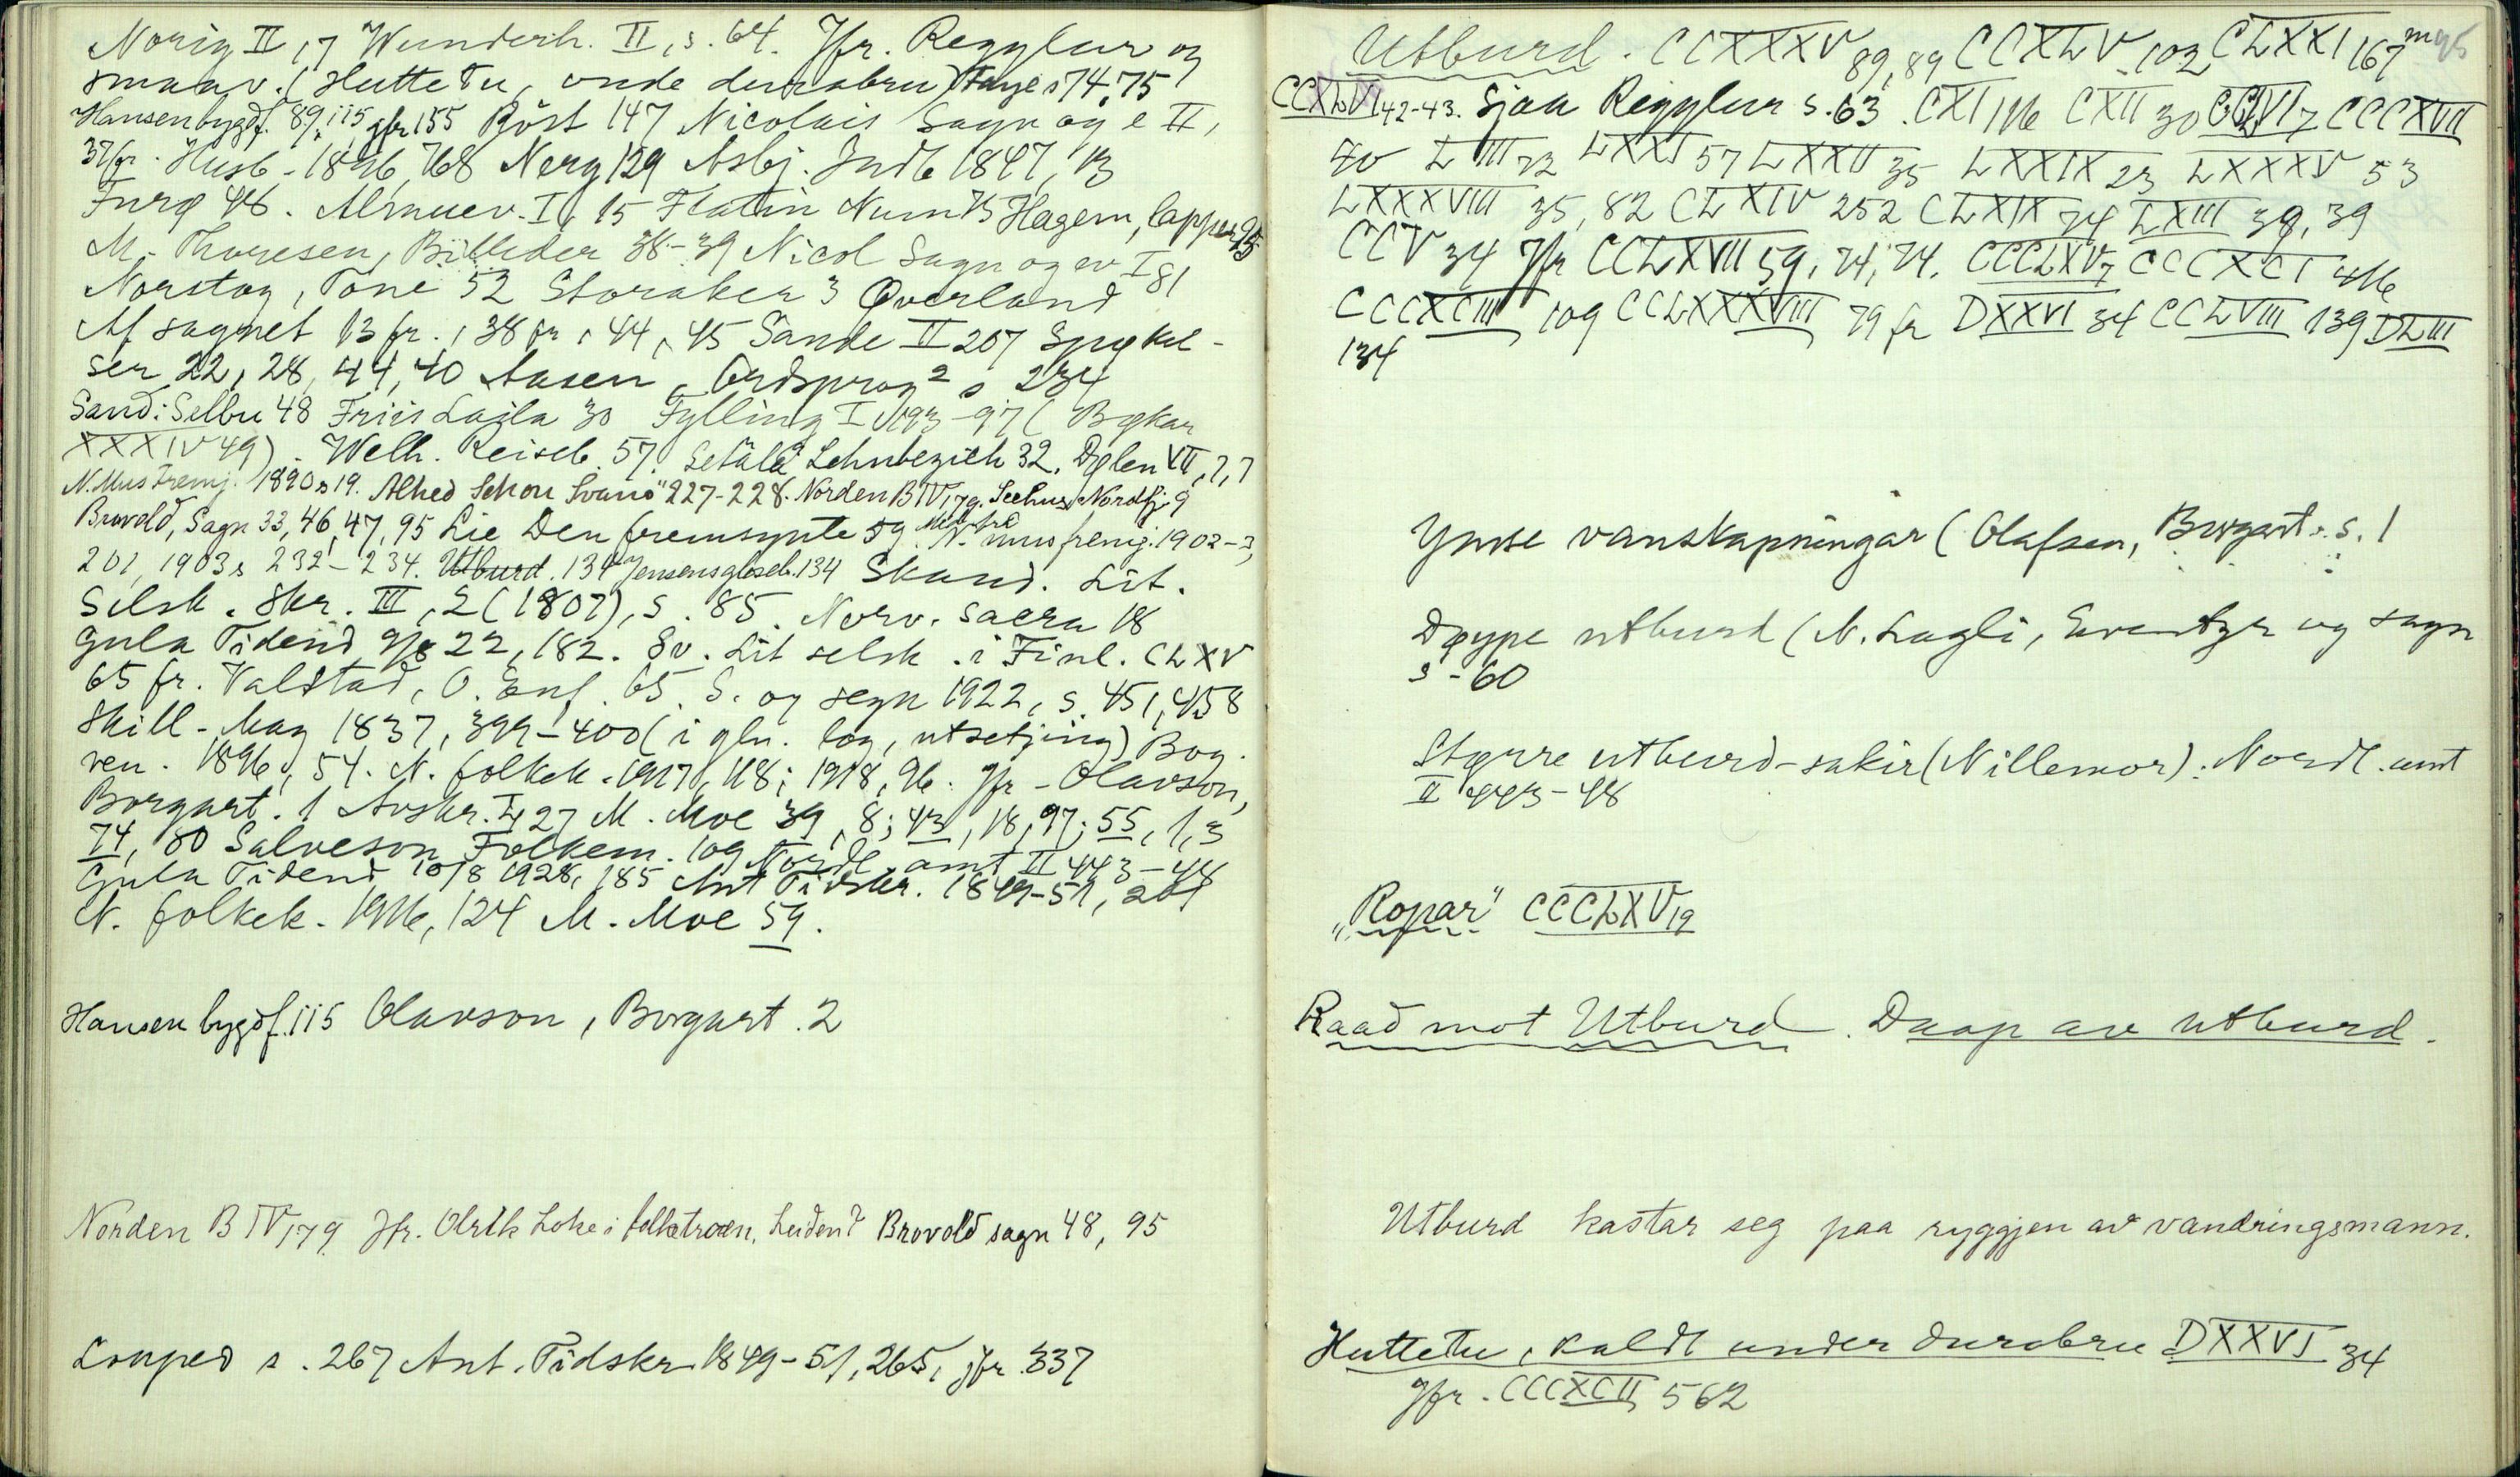 Norig II, 7 Wunderh. II, s. 64. Jfr. Regglur og
smaav. (Huttetu, unde durabru) Haye s 74, 75
Hansen bygdf. 89, 115 jfr 155 Röst 147 Nicolais Sagn og e II,
37 fr. Husb. 1896, 768 Nerg 129 Asbj. Indb 1847, 13
Furq 48. Almuev. I, 15 Flatin Num 75 Hagem, lapper 95
M. Thoresen, Billeder 38-39 Nicol Sagn og ev I 81
Norstog, Tone 52 Storaker 3 Överland
Af sagnet 13 fr., 38 fr, 44, 45 Sande II 207 Spøkel-
ser 22, 28, 44, 40 Aasen, Ordsprog² s 234
Sand: Selbu 48 Friis Laila 30 Fylling I 93-97 (Bøkar
XXXIV 49). Welh. Reiseb. 57. Setälä Lehnbezieh 32. Dølen VII, 7, 7
N. Mus Fremj. 1890 s 19. Alhed Schou Svanö 227-228. Norden B IV, 79. Seehus Nordfj. 9
Brovold, Sagn 33, 46, 47, 95 Lie Den fremsynte 59. Medd. fra N. mus fremj. 1902-3,
201, 1903 s 232-234. Utburd. 134 Jensens gloseb. 134 Skand. Lit.
Selsk. Skr. III, 2 (1807), s. 85. Norv. Sacra 18
Gula Tidend 9/8 22, 182. Sv. Lit selsk. i Finl. CLXV
65 fr. Valstad, O. Enf. 65. S. og segn 1922, s. 451, 458
Skill. Mag 1837, 399-400 (i gln. log, utsetjing) Bog.
ven. 1896, 54. N. folkek. 1917, 118; 1918, 96. Jfr. Olavson,
Borgart. 1 Avskr. I, 27 M. Moe 39, 8; 43, 18, 97; 55, 1, 3
74, 80 Salveson Folkem. 109 Nordl. amt II 443-48
Gula Tidend 10/8 1928, 185 Ant Tidskr. 1849-51, 201
N. folkek. 1916, 124 M. Moe 59.
Hansen bygdf. 115 Olavson, Borgart. 2
Norden B IV, 79. Jfr. Olrik Loke i folketroen, Brovold sagn 48, 95
s. 267 Ant. Tidskr. 1849-51, 265, jfr. 337
Utburd. CCXXXV 89, 89 CCXLV 102 CLXXI 167 m 95
CCXLVI 42-43. Sjaa Regglur s. 63. CXI 116 CXII 30 CCLVI 7 CCCXVII
70 LIII 72 LXXI 57 LXXII 35 LXXIX 23 LXXXV 53
LXXXVIII 35, 82 CLXIV 252 CLXIX 74 LXIII 38, 39
CCV 34 Jfr CCLXVII 59, 74, 74. CCCLXV 7 CCCXCI 46
CCCXCIII 109 CCLXXXVIII 79 fr DXXVI 34 CCLVIII 139 DLIII
134
Ymse vanskapningar (Olafsen, Borgart. s. 1
Døype utburd (N. Lagli, Eventyr og sagn
s. 60
Større utburd-sakir (Nillemor): Nordl. amt
II 443-48
"Ropar" CCCLXV 19
Raad mot Utburd. Daap av utburd.
Utburd kastar seg paa ryggjen av vandringsmann.
Huttetu, kaldt under durabru DXXVI 34
Jfr. CCCXCII 562